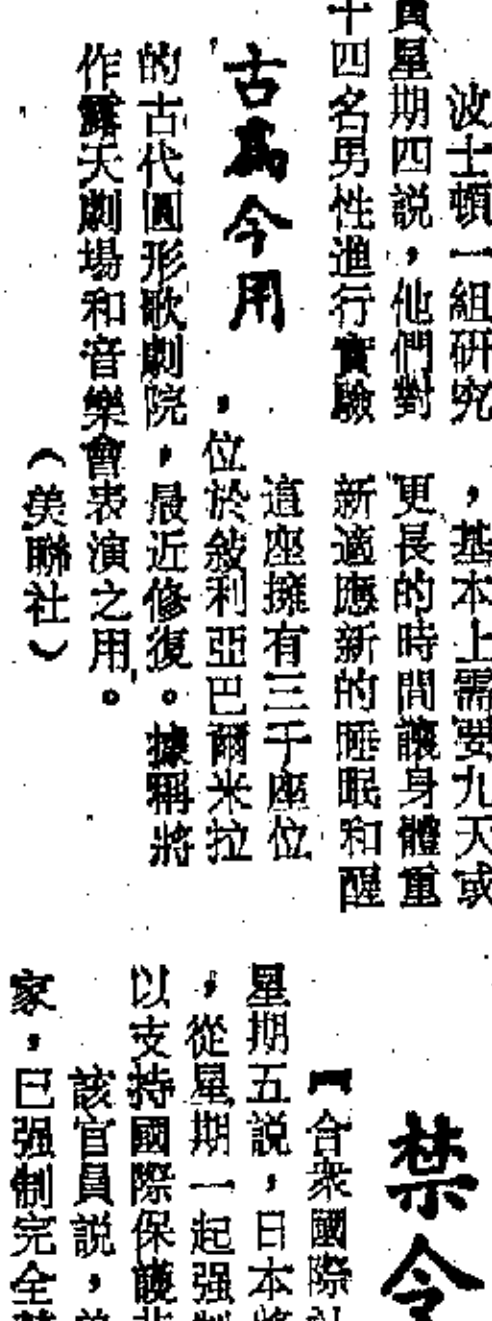 波士頓一組研究
員星期四説，他們對
十四名男性進行實驗
，基本上需要九天或
更長的時間讓身體重
新適應新的睡眠和醒
古為今用
這座擁有三千座位
，位於敍利亞巴爾米拉
的古代圓形歌劇院，最近修復。據稱將
作露天劇場和音樂會表演之用。
（美聯社）
禁令
合衆國際社
星期五説，日本將
，從星期一起强制
以支持國際保護
該官員説，
家，已强制完全